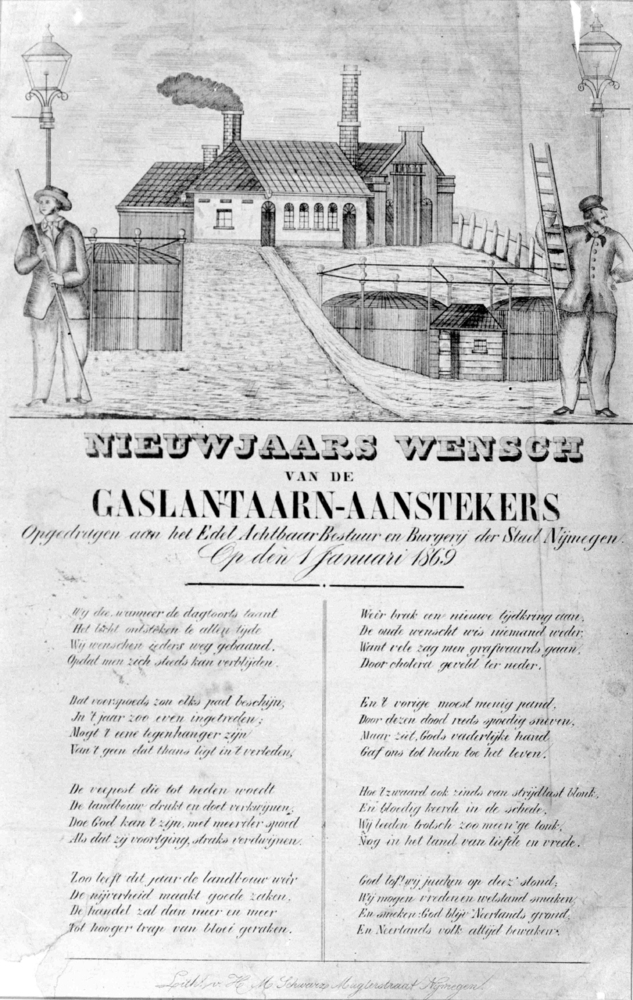 NIEUWJAARS WENSCH
VAN DE
GASLANTAARN-AANSTEKERS
Opgedragen aan het Edel Achtbaar Bestuur en Burgerij der Stad Nijmegen.
Op den 1 Januari 1869
Wij die, wanneer de dagtoorts taent
Het licht ontsteken te allen tyde
Wij wenschen ieders weg gebaand.
Opdat men zich steeds kan verblijden.
Dat voorspoeds zon elks pad beschijn,
In 't jaar zoo even ingetreden;
Mogt 't eene tegenhanger zijn
Van 't geen dat thans ligt in 't verleden,
De veepest die tot heden woedt
De landbouw drukt en doet verkwijnen;
Doe God kan 't zijn, met meerder spoed
Als dat zij voortging, straks verdwijnen.
Zoo leeft dit jaar de landbouw wêr
De nijverheid maakt goede zaken.
De handel zal dan meer en meer
Tot hooger trap van bloei geraken.
Weêr brak een nieuwe tijdkring aan,
De oude wenscht wis niemand weder,
Want vele zag men grafwaards gaan,
Door cholera geveld ter neder.
En 't vorige moest menig pand,
Door dezen dood reeds spoedig sneven.
Maar ziet, Gods vaderlijke hand
Gaf ons tot heden toe het leven.
Hoe 't zwaard ook sinds van strijdlust blonk,
En bloedig keerde in de schede,
Wij leeden trotsch zoo meen'ge lonk,
Nog in het land van liefde en vrede.
God lof! wij juichen op deez' stond;
Wij mogen vrede en welstand smaken,
En smeken: God blijv' Neerlands grond,
En Neerlands volk altijd bewaken.
Lith. v. H. M. Schwarz Nijmegen